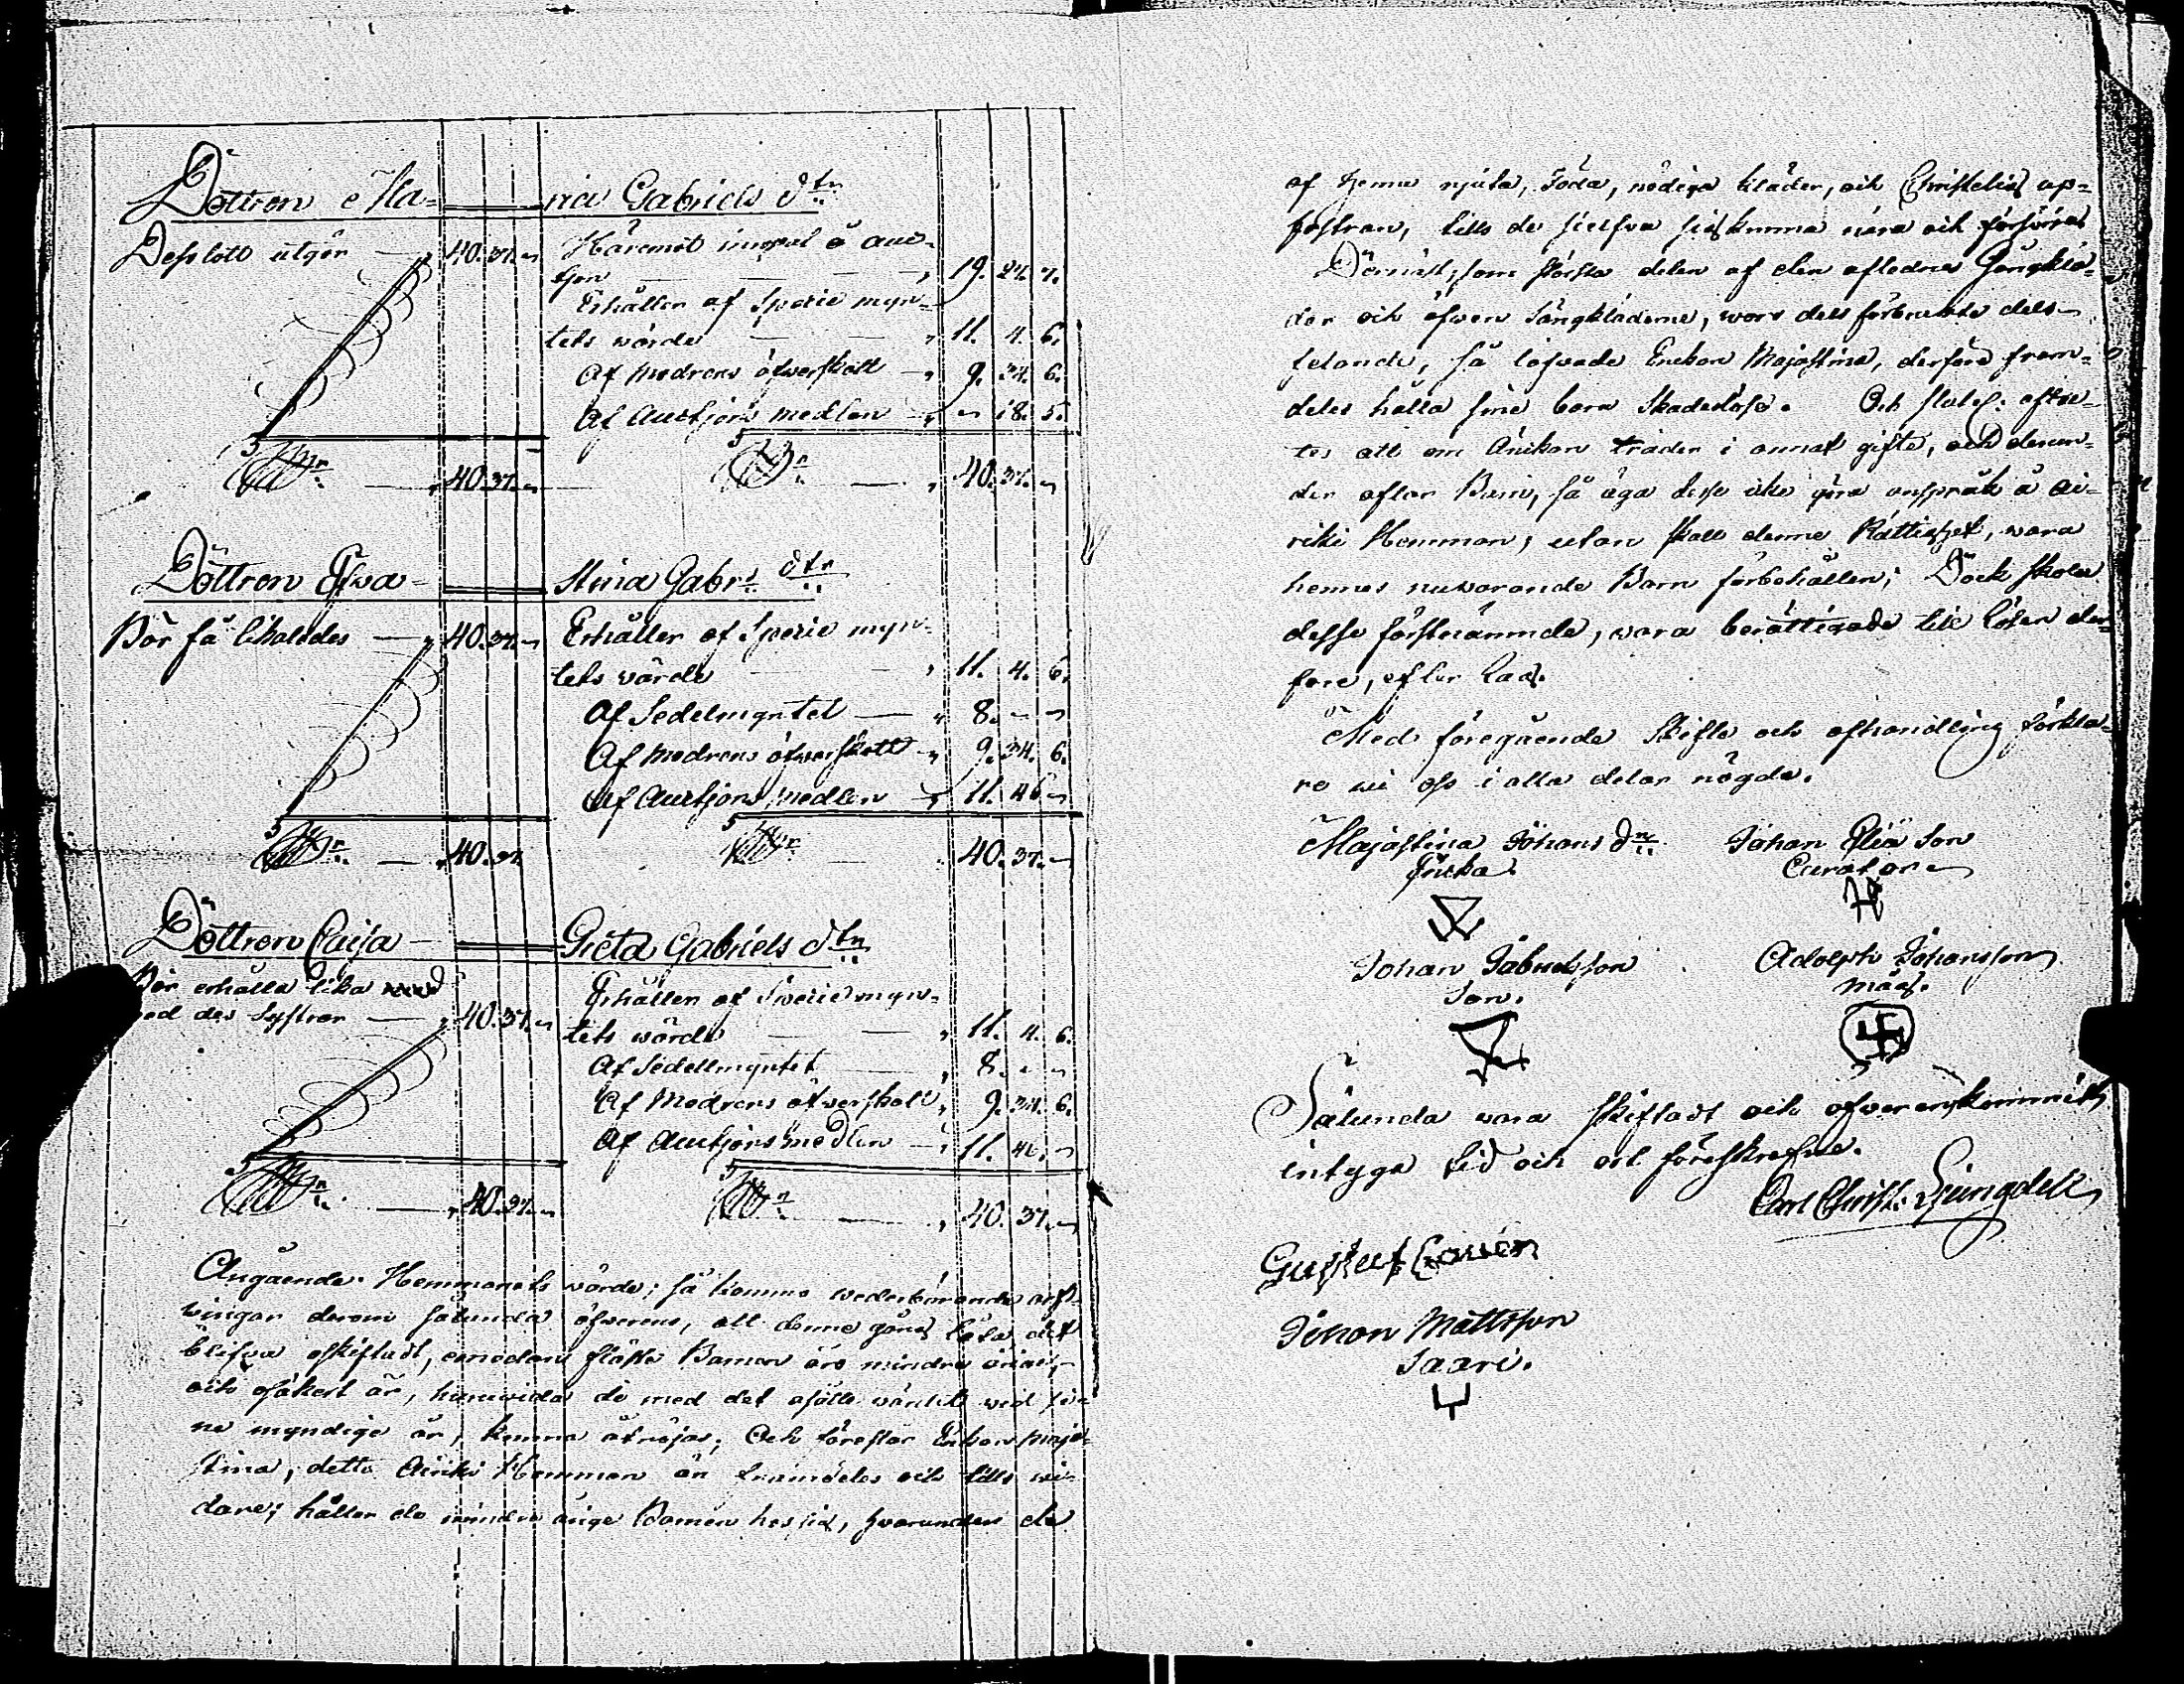 Döttron Ma- ria Gabriels dtr
Dess lott utgör — 40. 37. — Häremot inropat å auc-
tjon — 19. 24. 7.
Erhåller af Specie myn-
tets värde — 11. 4. 6.
Af Modrens öfverskott — 9. 34. 6.
Af Auctjons medlen — „ 18. 5.
Sr 40. 37. — Sr 40. 37. —
Döttron Efwa- Stina Gabrs dtr
Bör få likaledes — 40. 37. — Erhåller af Specie myn-
tets värde — 11. 4. 6.
Af Sedelmyntet — 8. — —
Af Modrens öfverskott — 9. 34. 6.
Af Auctjons medlen — 11. 46 —
40. 37. 40. 37. —
Döttron Caisa Greta Gabriels dtr
Bör erhålla lika
med des Systrar — 40. 37. — Erhåller af Specie myn-
tets wärde — 11. 4. 6.
Af Sedellmyntet — 8. — —
Af Modrens öfwerskott, 9. 34. 6.
Af Auctjons medlen — 11. 46. —
40. 37. — 40. 37. —
Angående Hemmanets wärde; så komma wederbörande arf-
wingar derom sålunda öfverens, att denne låta det
blifwa oskiftadt, emedan flästa Barnen äro mindre åriga,
och osäkert är, huruwida de med det wid si-
ne myndige år, kunna åtnöjas; Och föreslår Enkan Maja
Stina, detta Hemman än framdeles och tills wi-
dare; håller de mindre årige Barnen hos sig, hvarunder de
af henne njuta, föda, nödiga kläder, och Christelig up-
fostran, tills de sielfva sig kunna nära och försörja
Dernäst, som största delen af den aflednes Gångklä-
der och äfwen Sängkläderne, woro dels förbrukte dels
felande, så lofvade Enckan Majastina, derföre fram-
deles hålla sine barn skadeslöse. Och slutel: aftal-
tes att om Änckan träder i annat gifte, och derun-
der aflar Barn, så äga desse icke göra anspråk å
Hemman, utan skall denne Rättighet, wara
hennes nuwarande Barn förbehållen; Dock skola
desse förstnämnde, wara berättigade till lösen der-
före, efter Lag.
Med föregående Skifte och afhandling förkla-
re wi oss i alla delar nögde.
Majastina Johans dtr Johan Eliæ Son
Encka. Curator
Johan Gabrielsson Adolph Johansson
Son. måg.
Sålunda vara skiftadt och öfverenskommit,
intyga tid och ort föreskrefne.
Carl Christ. Ljungdell
Gustaf
Johan Mattsson
Saari.